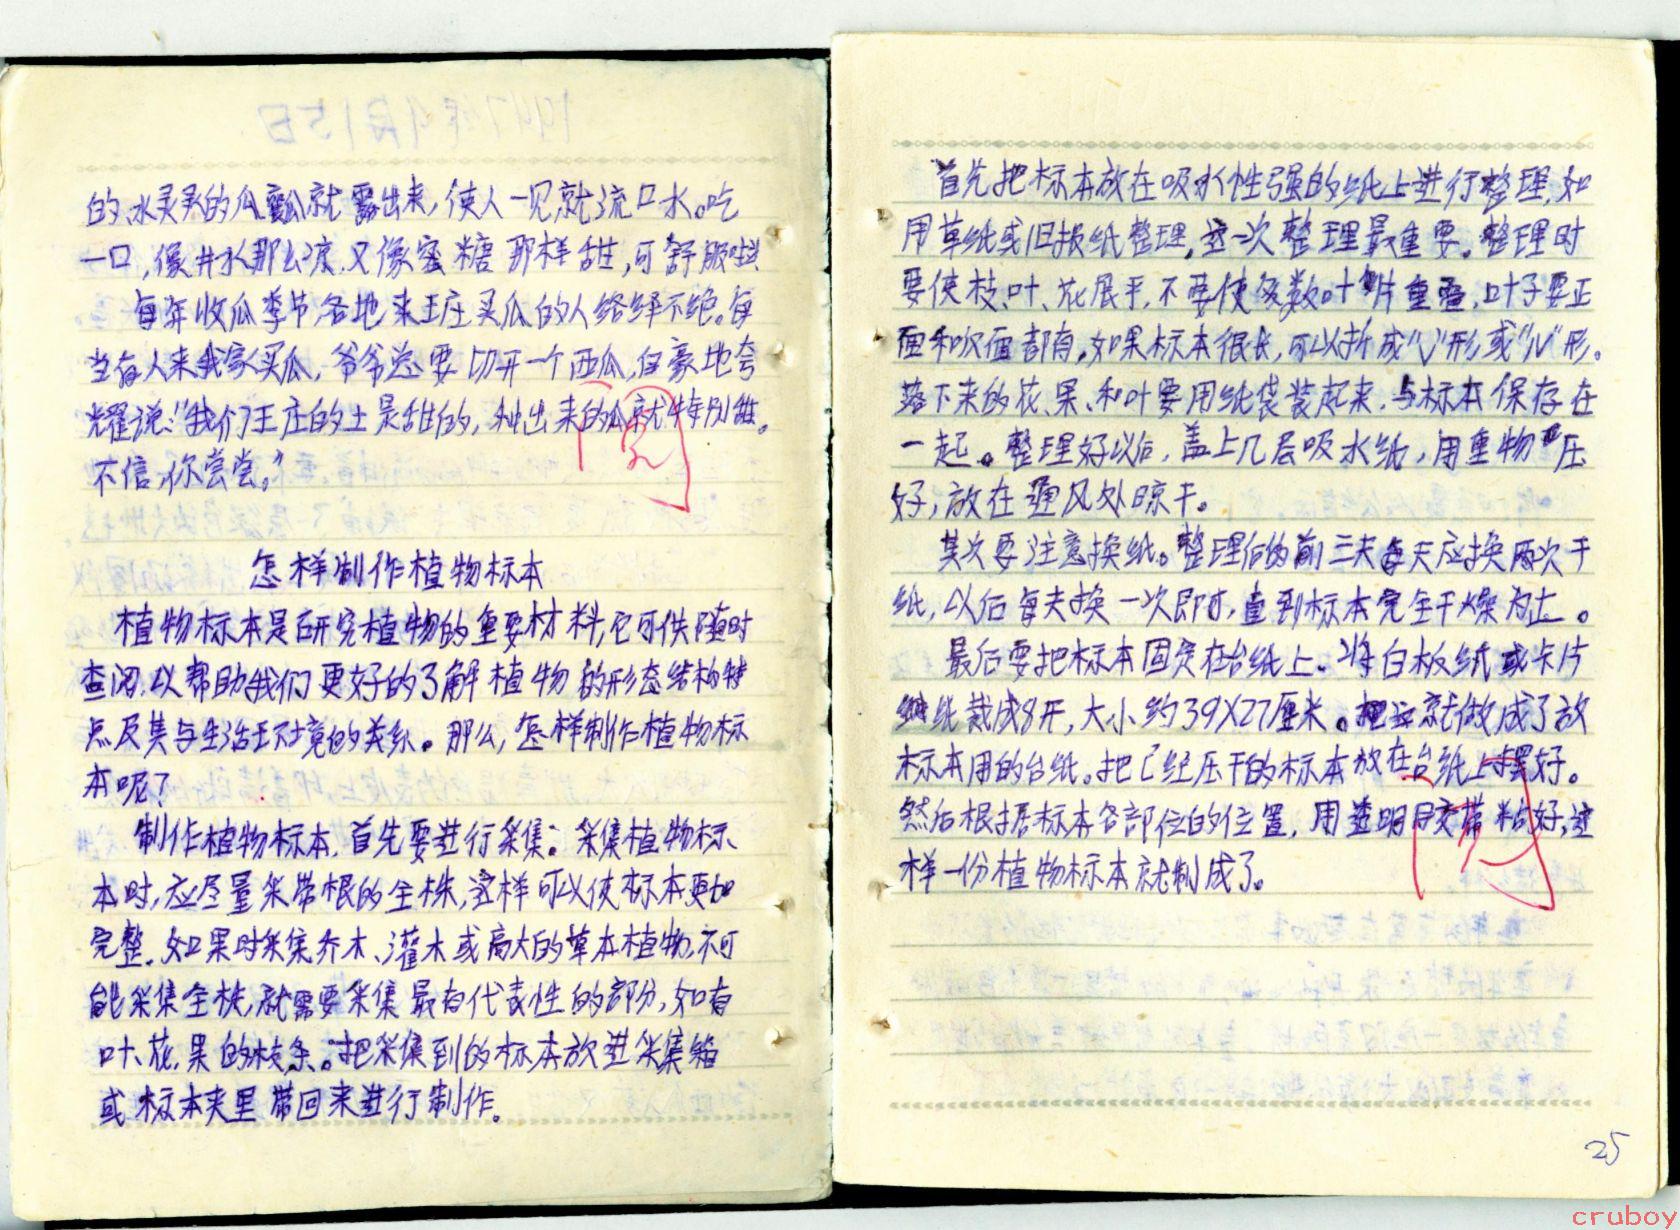 的水灵灵的瓜瓤就露出来，使人一见就流口水。吃
一口，像井水那么凉，又像蜜糖那样甜，可舒服啦！
每年收瓜季节，各地来王庄买瓜的人络绎不绝。每
当有人来我家买瓜，爷爷总要切开一个西瓜，自豪地夸
耀说：“我们王庄的土是甜的，种出来的瓜就特别甜。
不信，你尝尝。”
阅
怎样制作植物标本
植物标本是研究植物的重要材料，它可供随时
查阅，以帮助我们更好的了解植物的形态结构特
点及其与生活环境的关系。那么，怎样制作植物标
本呢？
制作植物标本，首先要进行采集：采集植物标
本时，应尽量采带根的全株，这样可以使标本更加
完整。如果时采集乔木、灌木或高大的草本植物，不可
能采集全株，就需要采集最有代表性的部分，如有
叶、花、果的枝条。把采集到的标本放进采集箱
或标本夹里带回来进行制作。
首先把标本放在吸水性强的纸上进行整理，如
用草纸或旧报纸整理，这一次整理最重要。整理时
要使枝、叶、花展平，不要使多数叶片重叠，叶子要正
面和反面都有，如果标本很长，可以折成“V”形或“N”形。
落下来的花、果、和叶要用纸袋装起来，与标本保存在
一起。整理好以后，盖上几层吸水纸，用重物压
好，放在通风处晾干。
其次要注意换纸。整理后的前三天每天应换两次干
纸，以后每天换一次即可，直到标本完全干燥为止。
最后要把标本固定在台纸上。将白板纸或卡片
纸裁成8开，大小约39X27厘米。这就做成了放
标本用的台纸。把已经压干的标本放在台纸上摆好。
然后根据标本各部位的位置，用透明胶带粘好，这
样一份植物标本就制成了。
阅
25
cruboy